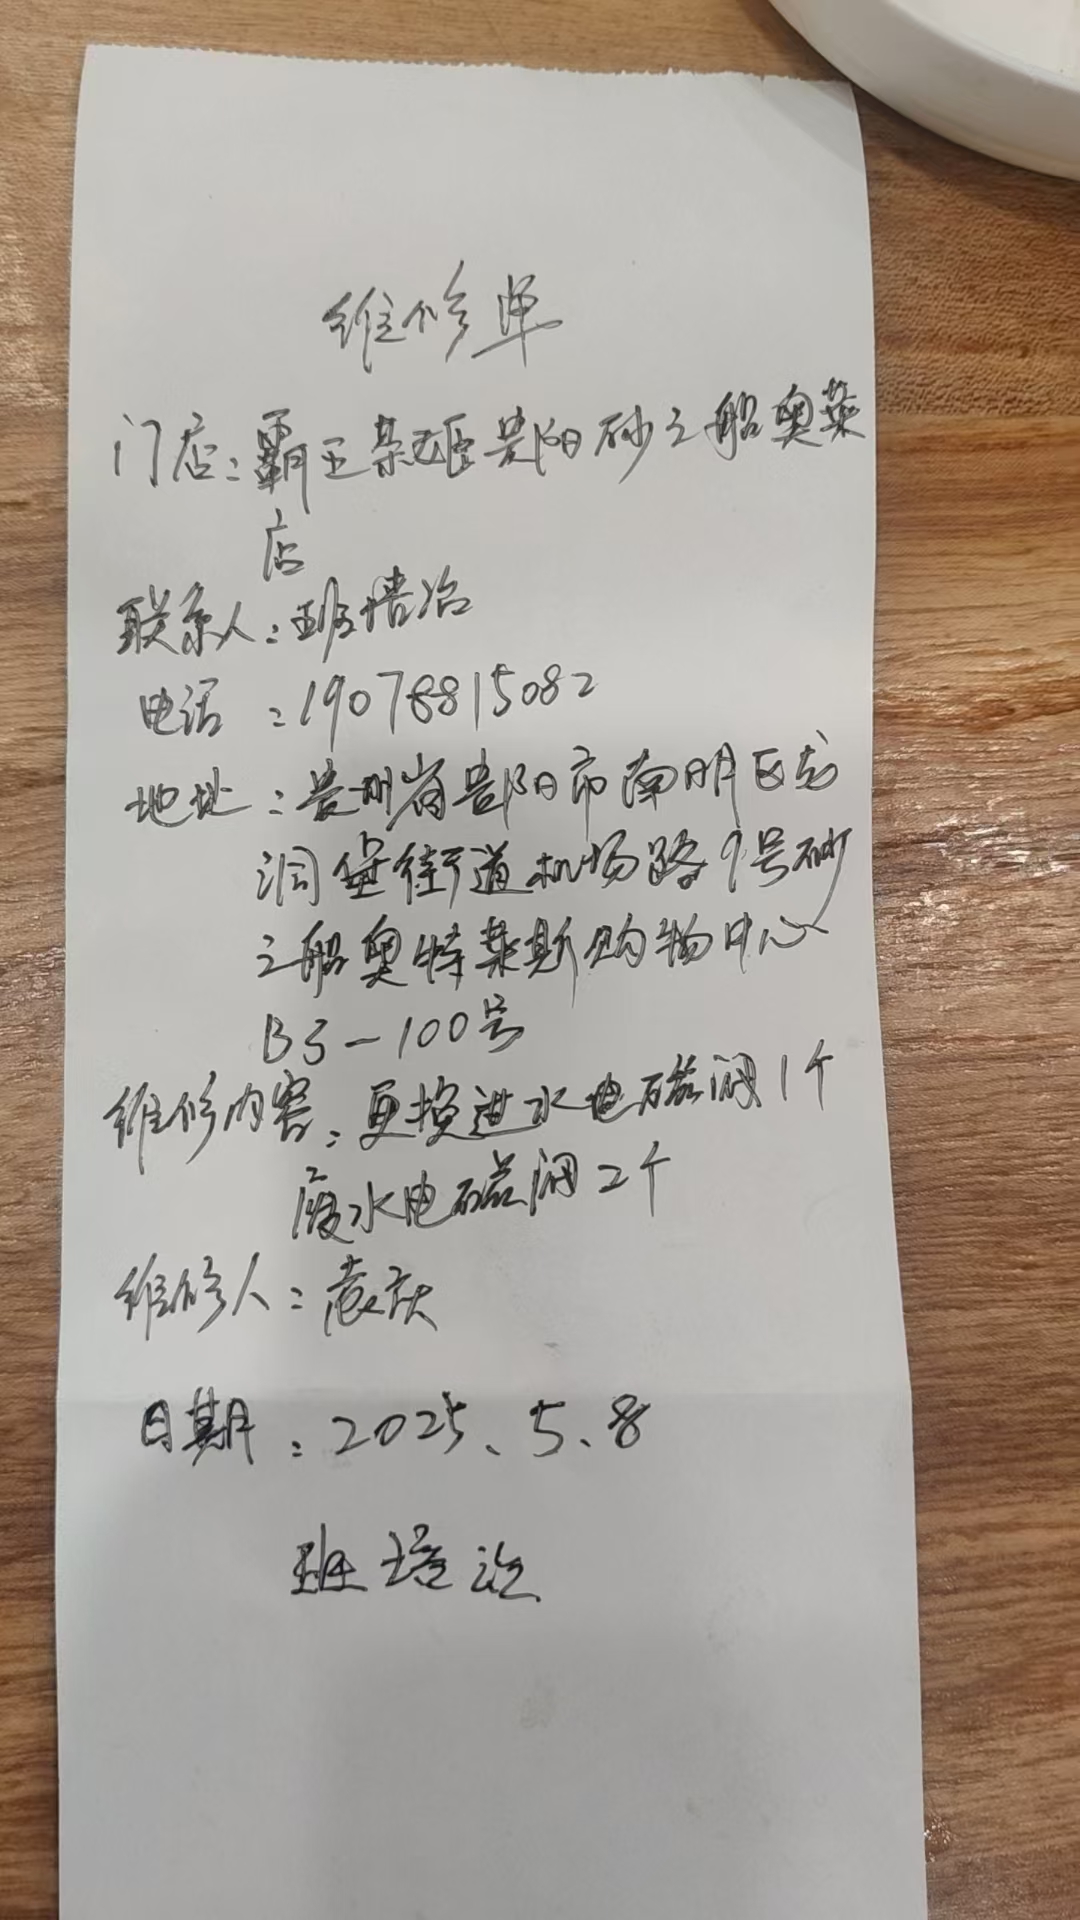 维修单
门店：霸王茶姬贵阳砂之船奥莱
店
联系人：班
电话：19078815082
地址：贵州省贵阳市南明区龙
洞堡街道机场路9号砂
之船奥特莱斯购物中心
B3-100号
维修内容：更换进水电磁阀1个
废水电磁阀2个
维修人：袁庆
日期：2025.5.8
班培